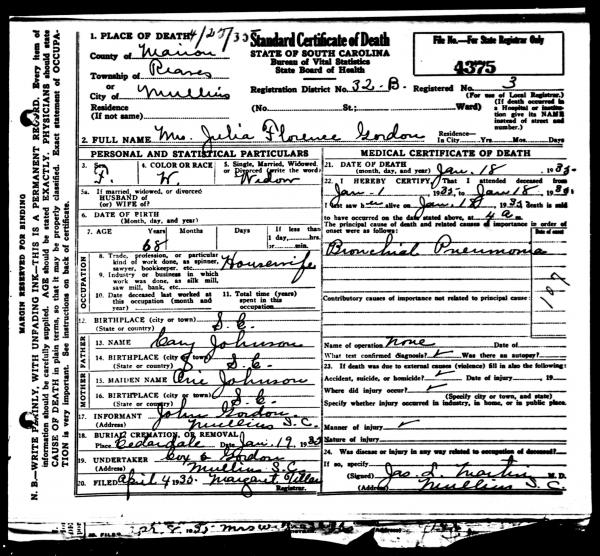 1. PLACE OF DEATH 4/25/35
County of Marion
Township of Reaves
or
City of Mullins
Residence
(If given)
Standard Certificate of Death
STATE OF SOUTH CAROLINA
Bureau of Vital Statistics
State Board of Health
Registration District No. 32-B. Registered No. 3
(No. St.; Ward)
File No.—For State Registrar Only
4375
(For use of Local Registrar.)
(If death occurred in a Hospital or institution give its NAME instead of street and number.)
2. FULL NAME Mrs. Julia Florence Gordon
Residence—
In City Yrs. Mos. Days
PERSONAL AND STATISTICAL PARTICULARS
3. Sex F.
4. COLOR OR RACE W.
5. Single, Married, Widowed, or Divorced (write the word) Widow
5a. If married, widowed, or divorced
HUSBAND of
(or) WIFE of?
6. DATE OF BIRTH
(Month, day, and year)
7. AGE Years Months Days If less than
68
1 day, hrs.
or min.
OCCUPATION
8. Trade, profession, or particular kind of work done, as spinner, sawyer, bookkeeper, etc. Housewife
9. Industry or business in which work was done, as silk mill, saw mill, bank, etc.
10. Date deceased last worked at this occupation (month and year)
11. Total time (years) spent in this occupation
12. BIRTHPLACE (city or town) S.C.
(State or country)
FATHER
13. NAME Cary Johnson
14. BIRTHPLACE (city or town) S.C.
(State or country)
MOTHER
15. MAIDEN NAME Johnson
16. BIRTHPLACE (city or town) S.C.
(State or country)
17. INFORMANT John Gordon
(Address) Mullins S.C.
18. BURIAL, CREMATION, OR REMOVAL
Place Cedardale Date Jan. 19 1935
19. UNDERTAKER Cox & Gordon
(Address) Mullins S.C.
20. FILED April 4 1935 Margaret
Registrar.
MEDICAL CERTIFICATE OF DEATH
21. DATE OF DEATH
(month, day, and year) Jan. 18, 1935
22. I HEREBY CERTIFY, That I attended deceased from
Jan. 1 1935 to Jan 18, 1935
I last saw her alive on Jan 18, 1935 death is said
to have occurred on the date stated above, at 4 a m.
The principal cause of death and related causes of importance in order of
onset were as follows: Date of onset
Bronchial Pneumonia
107
Contributory causes of importance not related to principal cause:
Name of operation none Date of
What test confirmed diagnosis? Was there an autopsy?
23. If death was due to external causes (violence) fill in also the following:
Accident, suicide, or homicide? Date of injury, 19
Where did injury occur?
(Specify city or town, and state)
Specify whether injury occurred in industry, in home, or in public place.
Manner of injury
Nature of injury
24. Was disease or injury in any way related to occupation of deceased?
If so, specify
(Signed) Jas. L. Martin M.D.
(Address) Mullins S.C.
MARGIN RESERVED FOR BINDING
N. B.—WRITE PLAINLY, WITH UNFADING INK—THIS IS A PERMANENT RECORD. Every item of
information should be carefully supplied. AGE should be stated EXACTLY. PHYSICIANS should state
CAUSE OF DEATH in plain terms, so that it may be properly classified. Exact statement of OCCUPATION is very important. See instructions on back of certificate.